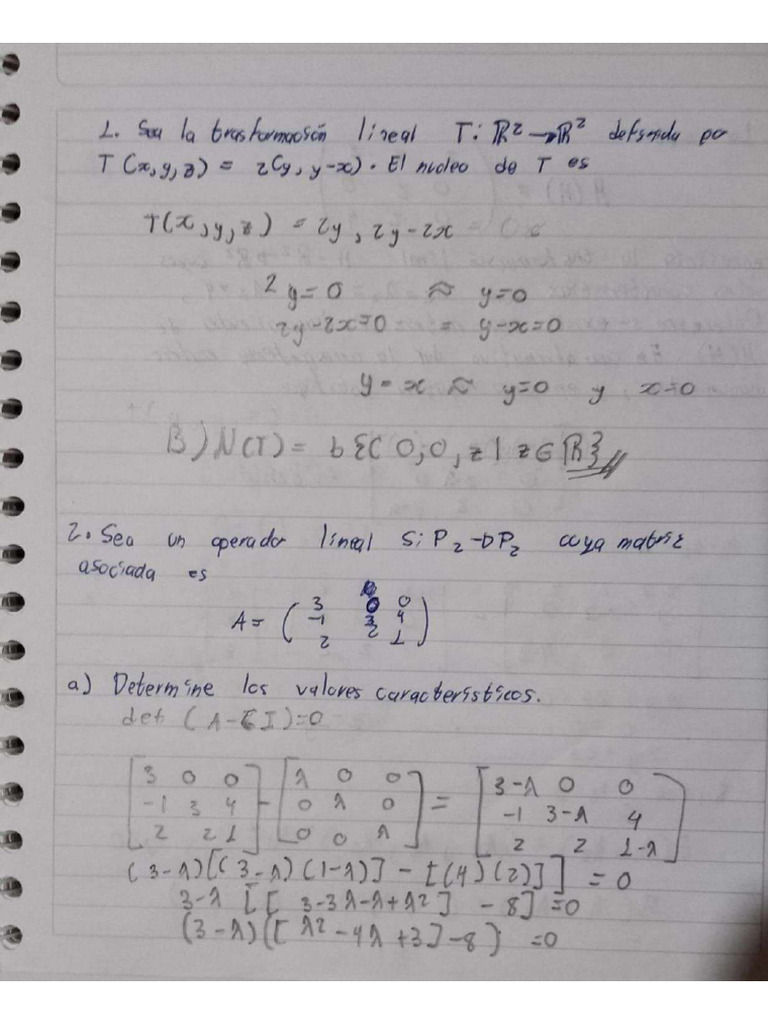 1. Sea la trasformación lineal T: ℝ² → ℝ² definida por
T(x,y,z) = 2(y, y-x). El nucleo de T es
T(x,y,z) = 2y, 2y-2x
2y=0 ≈ y=0
2y-2x=0 = y-x=0
y=x ≈ y=0 y x=0
B) N(T) = b{(0,0,z | z∈ℝ}
2. Sea un operador lineal S: P₂→P₂ cuya matriz
asociada es
A = ( 3 0 0
-1 3 4
2 2 1 )
a) Determine los valores caracteristicos.
det (A-λI)=0
[3 0 0] - [λ 0 0] = [3-λ 0 0]
[-1 3 4] [0 λ 0] [-1 3-λ 4]
[2 2 1] [0 0 λ] [2 2 1-λ]
(3-λ)[(3-λ)(1-λ)] - [(4)(2)]] = 0
3-λ [[3-3λ-λ+λ2] - 8] =0
(3-λ)([λ2-4λ+3]-8) =0